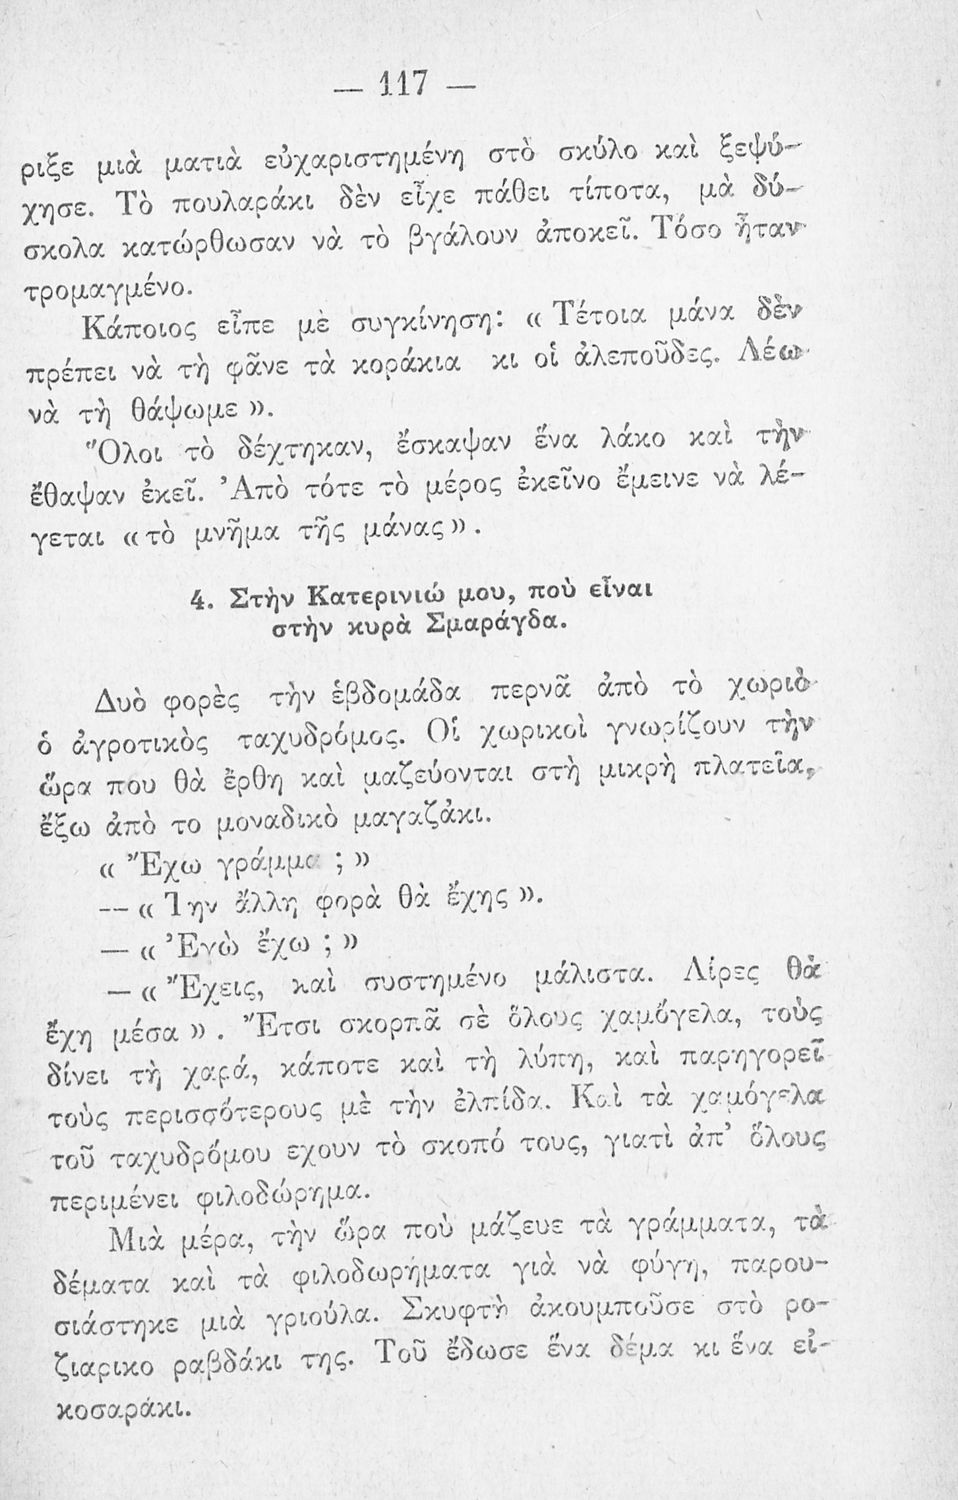 — 117 —
ριξε μιὰ ματιὰ εὐχαριστημένη στὸ σκύλο καὶ ξεψύ-
χησε. Τὸ πουλαράκι δὲν εἶχε πάθει τίποτα, μὰ δύ-
σκολα κατώρθωσαν νὰ τὸ βγάλουν ἀποκεῖ. Τόσο ἦταν
τρομαγμένο.
Κάποιος εἶπε μὲ συγκίνηση: « Τέτοια μάνα δὲν
πρέπει νὰ τὴ φᾶνε τὰ κοράκια κι οἱ ἀλεποῦδες. Λέω
νὰ τὴ θάψωμε ».
Ὅλοι τὸ δέχτηκαν, ἔσκαψαν ἕνα λάκο καὶ τὴν
ἔθαψαν ἐκεῖ. Ἀπὸ τότε τὸ μέρος ἐκεῖνο ἔμεινε νὰ λέ-
γεται «τὸ μνῆμα τῆς μάνας» .
4. Στὴν Κατερινιώ μου, ποὺ εἶναι
στὴν κυρὰ Σμαράγδα.
Δυὸ φορὲς τὴν ἑβδομάδα περνᾶ ἀπὸ τὸ χωριὸ
ὁ ἀγροτικὸς ταχυδρόμος. Οἱ χωρικοὶ γνωρίζουν τὴν
ὥρα που θὰ ἔρθη καὶ μαζεύονται στὴ μικρὴ πλατεῖα,
ἔξω ἀπὸ το μοναδικὸ μαγαζάκι.
« Ἔχω γράμμα ; »
— « Την ἄλλη φορὰ θὰ ἔχης ».
— « Ἐγὼ ἔχω ; »
— « Ἔχεις, καὶ συστημένο μάλιστα. Λίρες θὰ
ἔχη μέσα » . Ἔτσι σκορπᾶ σὲ ὅλους χαμόγελα, τοὺς
δίνει τὴ χαρά, κάποτε καὶ τὴ λύπη, καὶ παρηγορεῖ
τοὺς περισσότερους μὲ τὴν ἐλπίδα. Καὶ τὰ χαμόγελα
τοῦ ταχυδρόμου εχουν τὸ σκοπό τους, γιατὶ ἀπ’ ὅλους
περιμένει φιλοδώρημα.
Μιὰ μέρα, τὴν ὥρα ποὺ μάζευε τὰ γράμματα, τὰ
δέματα καὶ τὰ φιλοδωρήματα γιὰ νὰ φύγη, παρου-
σιάστηκε μιὰ γριούλα. Σκυφτὴ ἀκουμποῦσε στὸ ρο-
ζιαρικο ραβδάκι της. Τοῦ ἔδωσε ἕνα δέμα κι ἕνα εἰ-
κοσαράκι.